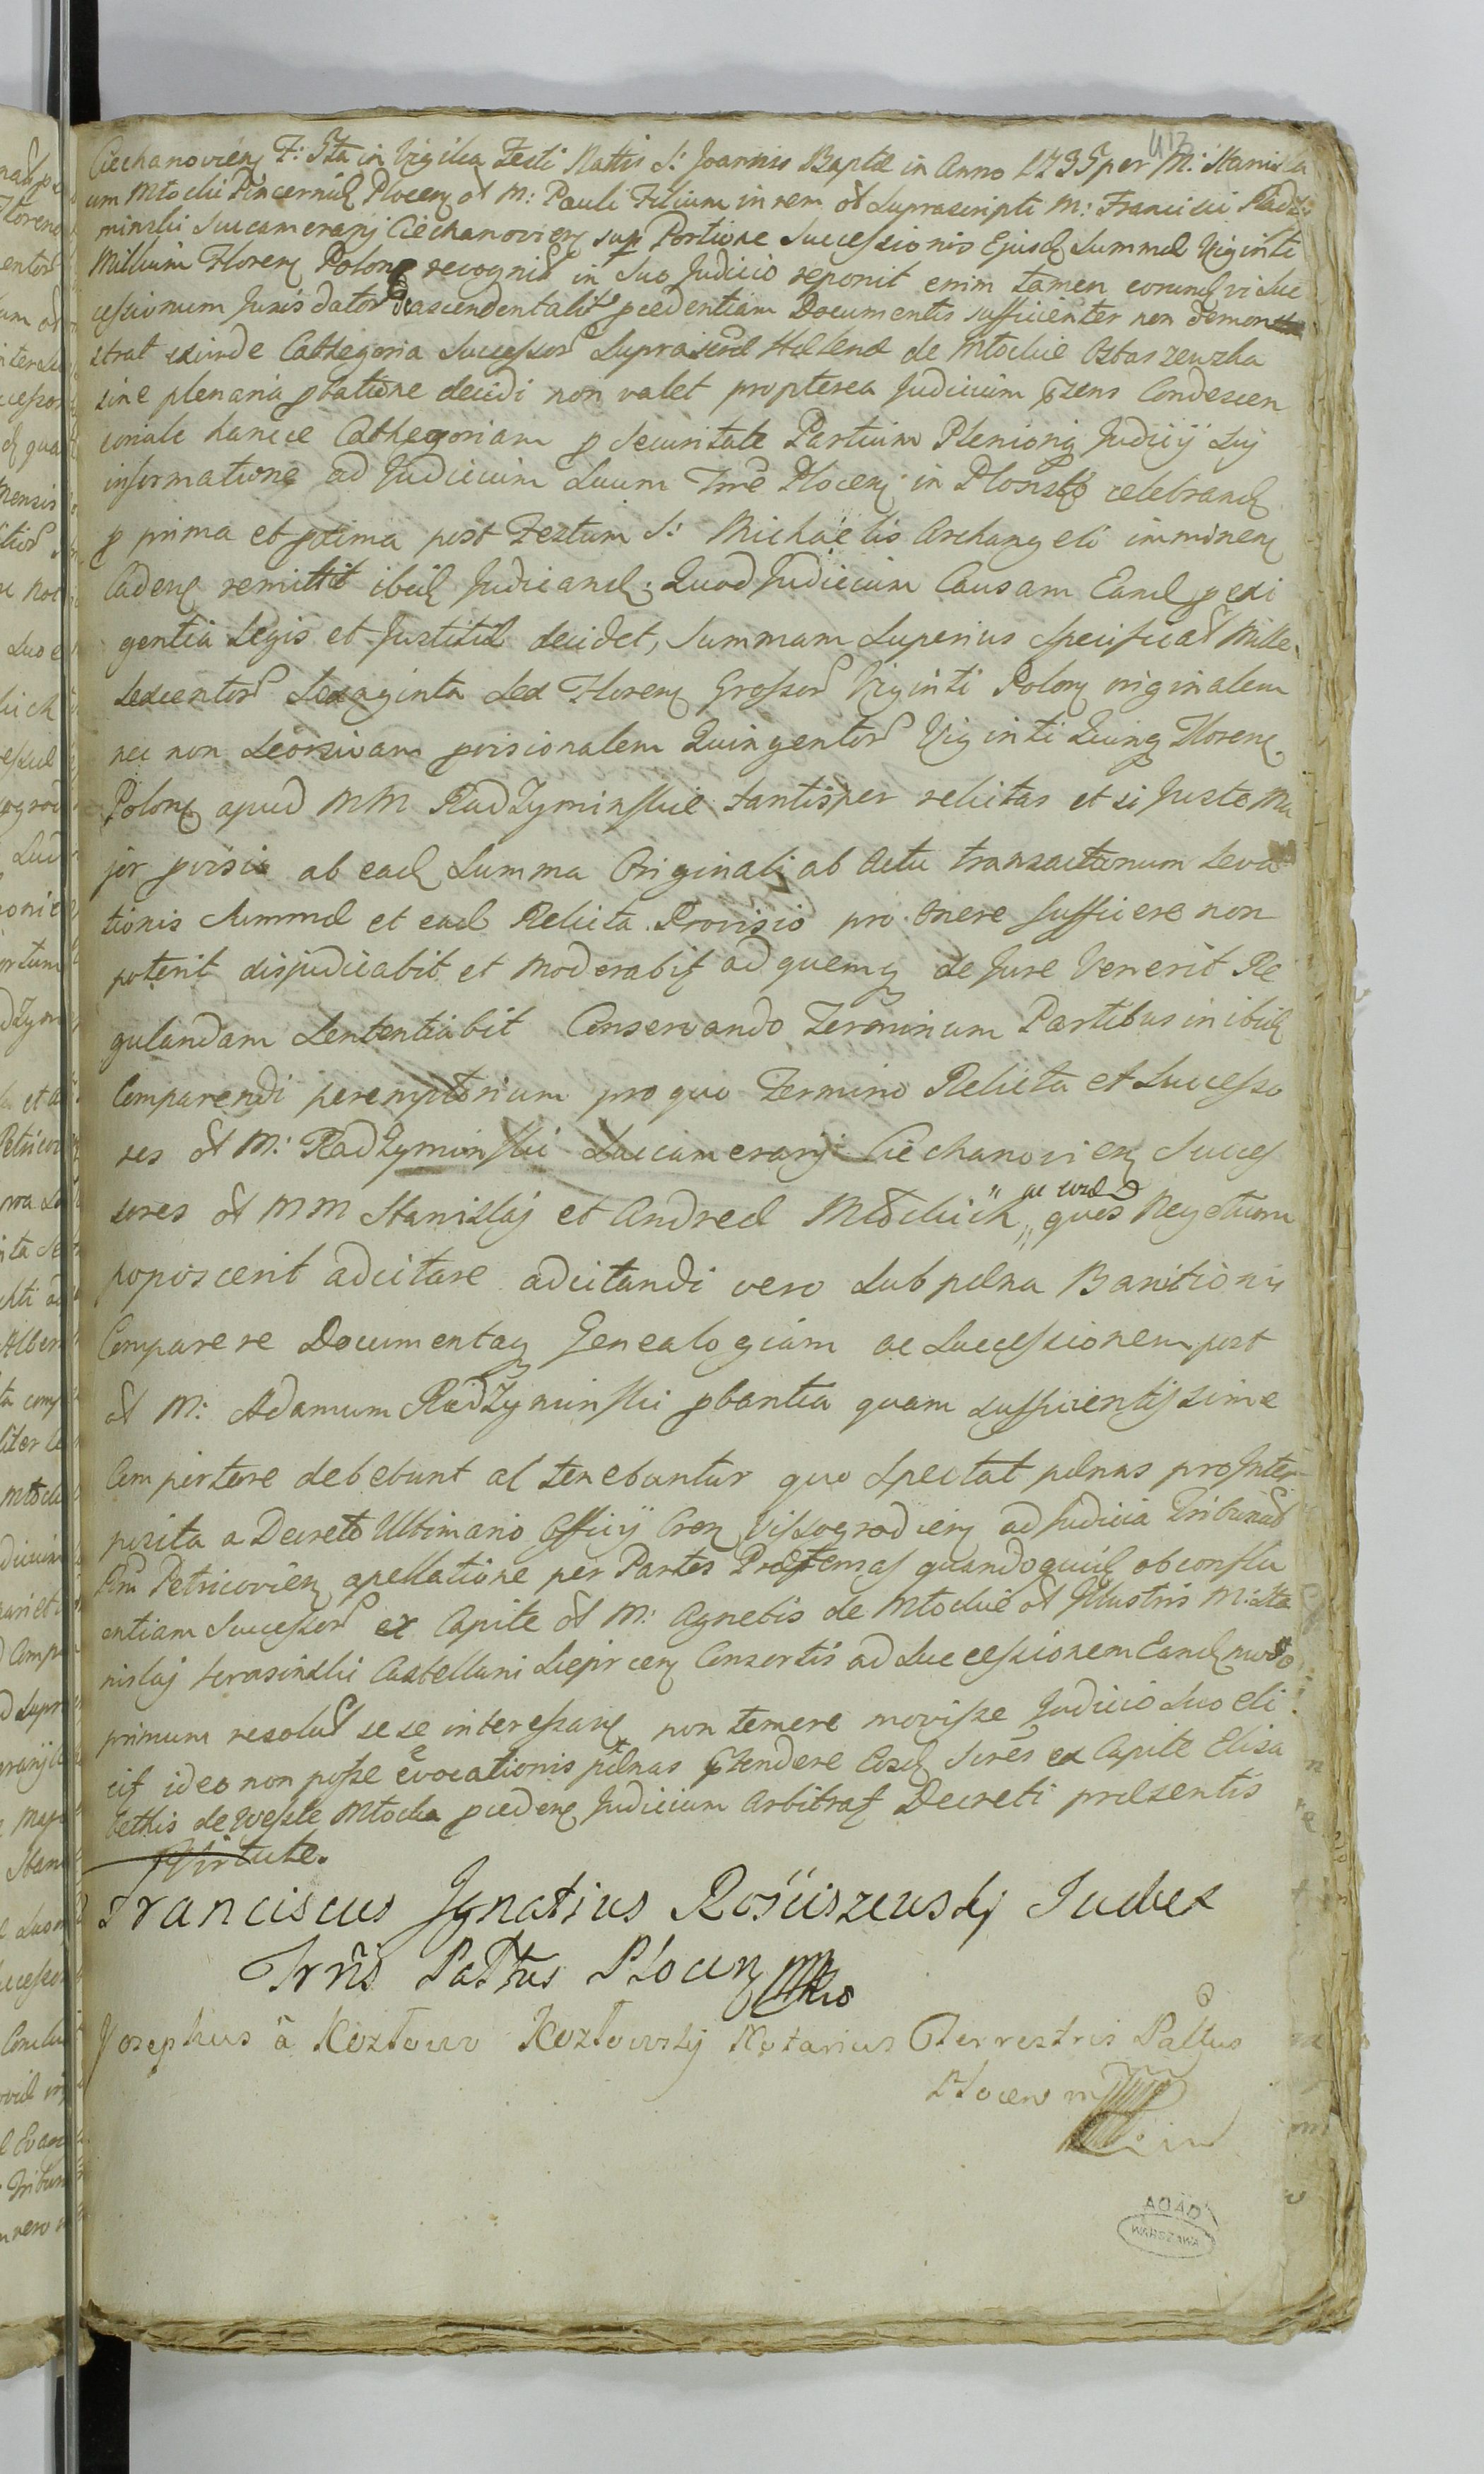 413
Ciechanovien F: Ita in Vigilia Festi Nattis S: Joannis Baptæ in Anno 1735 per M: Stanisla
um Młocki Pincernid Plocen ol M: Pauli Filium in rem ol Suprascripti M: Francisci Radzi
minski Succameranj Ciechanovien sup Portione Successionis Ejusd Summæ Viginti
Millium Floren Polon recognit in Suo Judicio reponit enim tamen eorund vi Suc
cessionum Juris dator descendentalit pcedentiam Documentis sufficienter non demon
strat exinde Cathegoria Successor Suprascrd Helenæ de Młockie Ostaszewska
sine plenaria pbatione decidi non valet propterea Judicium pzens Condescen
soriale hancce Cathegoriam p Securitate Partium Plenioriq Judicij Sui
informatione ad Judicium Suum Trre Plocen in Plonsko celebrand
p prima et ptima post Festum S: Michaelis Archangeli imminen
Caden remittit ibid Judicand: Quod Judicium Causam Eand p exi
gentia Legis et Justitiæ decidet, Summam Superius Specificat Mille
Sexcentor Sexaginta Sex Floren Grossor Viginti Polon originalem
nec non Seorsivam pvisionalem Quingentor Viginti Quinq Floren
Polon apud MM Radzyminskie tantisper relictas et si Juste Ma
jor pvisio ab ead Summa Originali ab Actu transactionum Leva
tionis Summæ et ead Relicta Provisio pro Onere Sufficere non
poterit disjudicabit et Moderabit ad quemq de Jure Venerit Re
gulandam Sententiabit Conservando Terminum Partibus inibid
Comparendi peremptorium pro quo Termino Relicta et Successo
res ol M: Radzyminskii Succameranj Ciechanovien Succes
sores ol MM Stanislaj et Andreæ Młockich " quos Negotium
poposcerit adcitare adcitandi vero sub pæna Banitionis
Comparere Documentaq Genealogiam ac Successionem post
ol M: Adamum Radzyminski pbantia quam sufficientissime
Comportare debebunt al tenebuntur quo Spectat pænas pro Inter
posita a Decreto Ultimario Officij Cron Vissogrodien ad Judicia Tribunal
Petricovien apellatione per Partes Prætensas quandoquid ob conflu
entiam Successor ex Capite ol M: Agnetis de Młockie ol Illustris M: Sta
nislaj Karasinskii Castellani Sieprcen Consortis ad Successionem Eand modo
primum resolut sese interessare non temere movisse Judicio Suo eli
cit ideo non posse evocationis pænas ptendere Eosd Sures ex Capite Elisa
bethis de Wessle Młocka pceden Judicium Arbitrat Decreti præsentis
Virtute.
Franciscus Ignatius Rościszewsky Judex
Trris Pattus Plocen mp
Josephus a Kozłowo Kozłowsky Notarius Terrestris Pattus
Plocen mp
AGAD
WARSZAWA